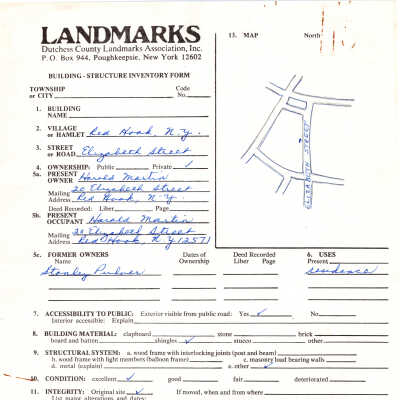 LANDMARKS
Dutchess County Landmarks Association, Inc.
P. O. Box 944, Poughkeepsie, New York 12602
BUILDING - STRUCTURE INVENTORY FORM
TOWNSHIP or CITY
Code No.
1. BUILDING NAME
2. VILLAGE or HAMLET Red Hook, N.Y.
3. STREET or ROAD Elizabeth Street
4. OWNERSHIP: Public Private ✓
5a. PRESENT OWNER Harold Martin
Mailing Address 20 Elizabeth Street
Red Hook, N.Y.
Deed Recorded: Liber Page
5b. PRESENT OCCUPANT Harold Martin
Mailing Address 20 Elizabeth Street
Red Hook, N.Y 12571
13. MAP North
ELIZABETH STREET
5c. FORMER OWNERS Name
Dates of Ownership
Deed Recorded Liber Page
6. USES Present residence
Stanley Pulver
7. ACCESSIBILITY TO PUBLIC: Exterior visible from public road: Yes ✓ No
Interior accessible: Explain
8. BUILDING MATERIAL: clapboard stone brick
board and batten shingles ✓ stucco other
9. STRUCTURAL SYSTEM: a. wood frame with interlocking joints (post and beam)
b. wood frame with light members (balloon frame) c. masonry load bearing walls
d. metal (explain) e. other ✓
10. CONDITION: excellent ✓ good fair deteriorated
11. INTEGRITY: Original site ✓ If moved, when and from where
List major alterations and dates: